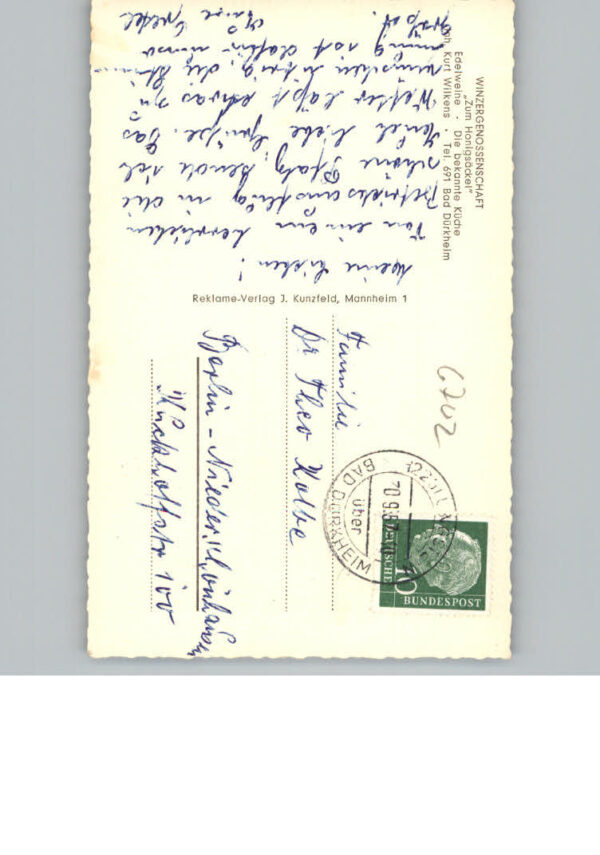 WINZERGENOSSENSCHAFT
„Zum Honigsäckel"
Edelweine · Die bekannte Küche
Inh. Kurt Wilkens · Tel. 691 Bad Dürkheim
Meine Lieben!
Von einem herrlichen
Betriebsausflug in die
schöne Pfalz, sende ich
Euch liebe Grüße. Das
Wetter läßt etwas zu
wünschen übrig, die Stim-
mung ist dafür umso
Eure Gretel
Reklame-Verlag J. Kunzfeld, Mannheim 1
Familie
Dr Theo Kolbe
Berlin - Niederschönhausen
Kuckhoffstr 100
6702
BAD DÜRKHEIM
über
10
DEUTSCHE
BUNDESPOST